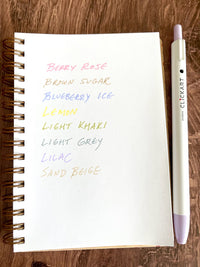 BERRY ROSE
BROWN SUGAR
BLUEBERRY ICE
LEMON
LIGHT KHAKI
LIGHT GREY
LILAC
SAND BEIGE
CLICKART